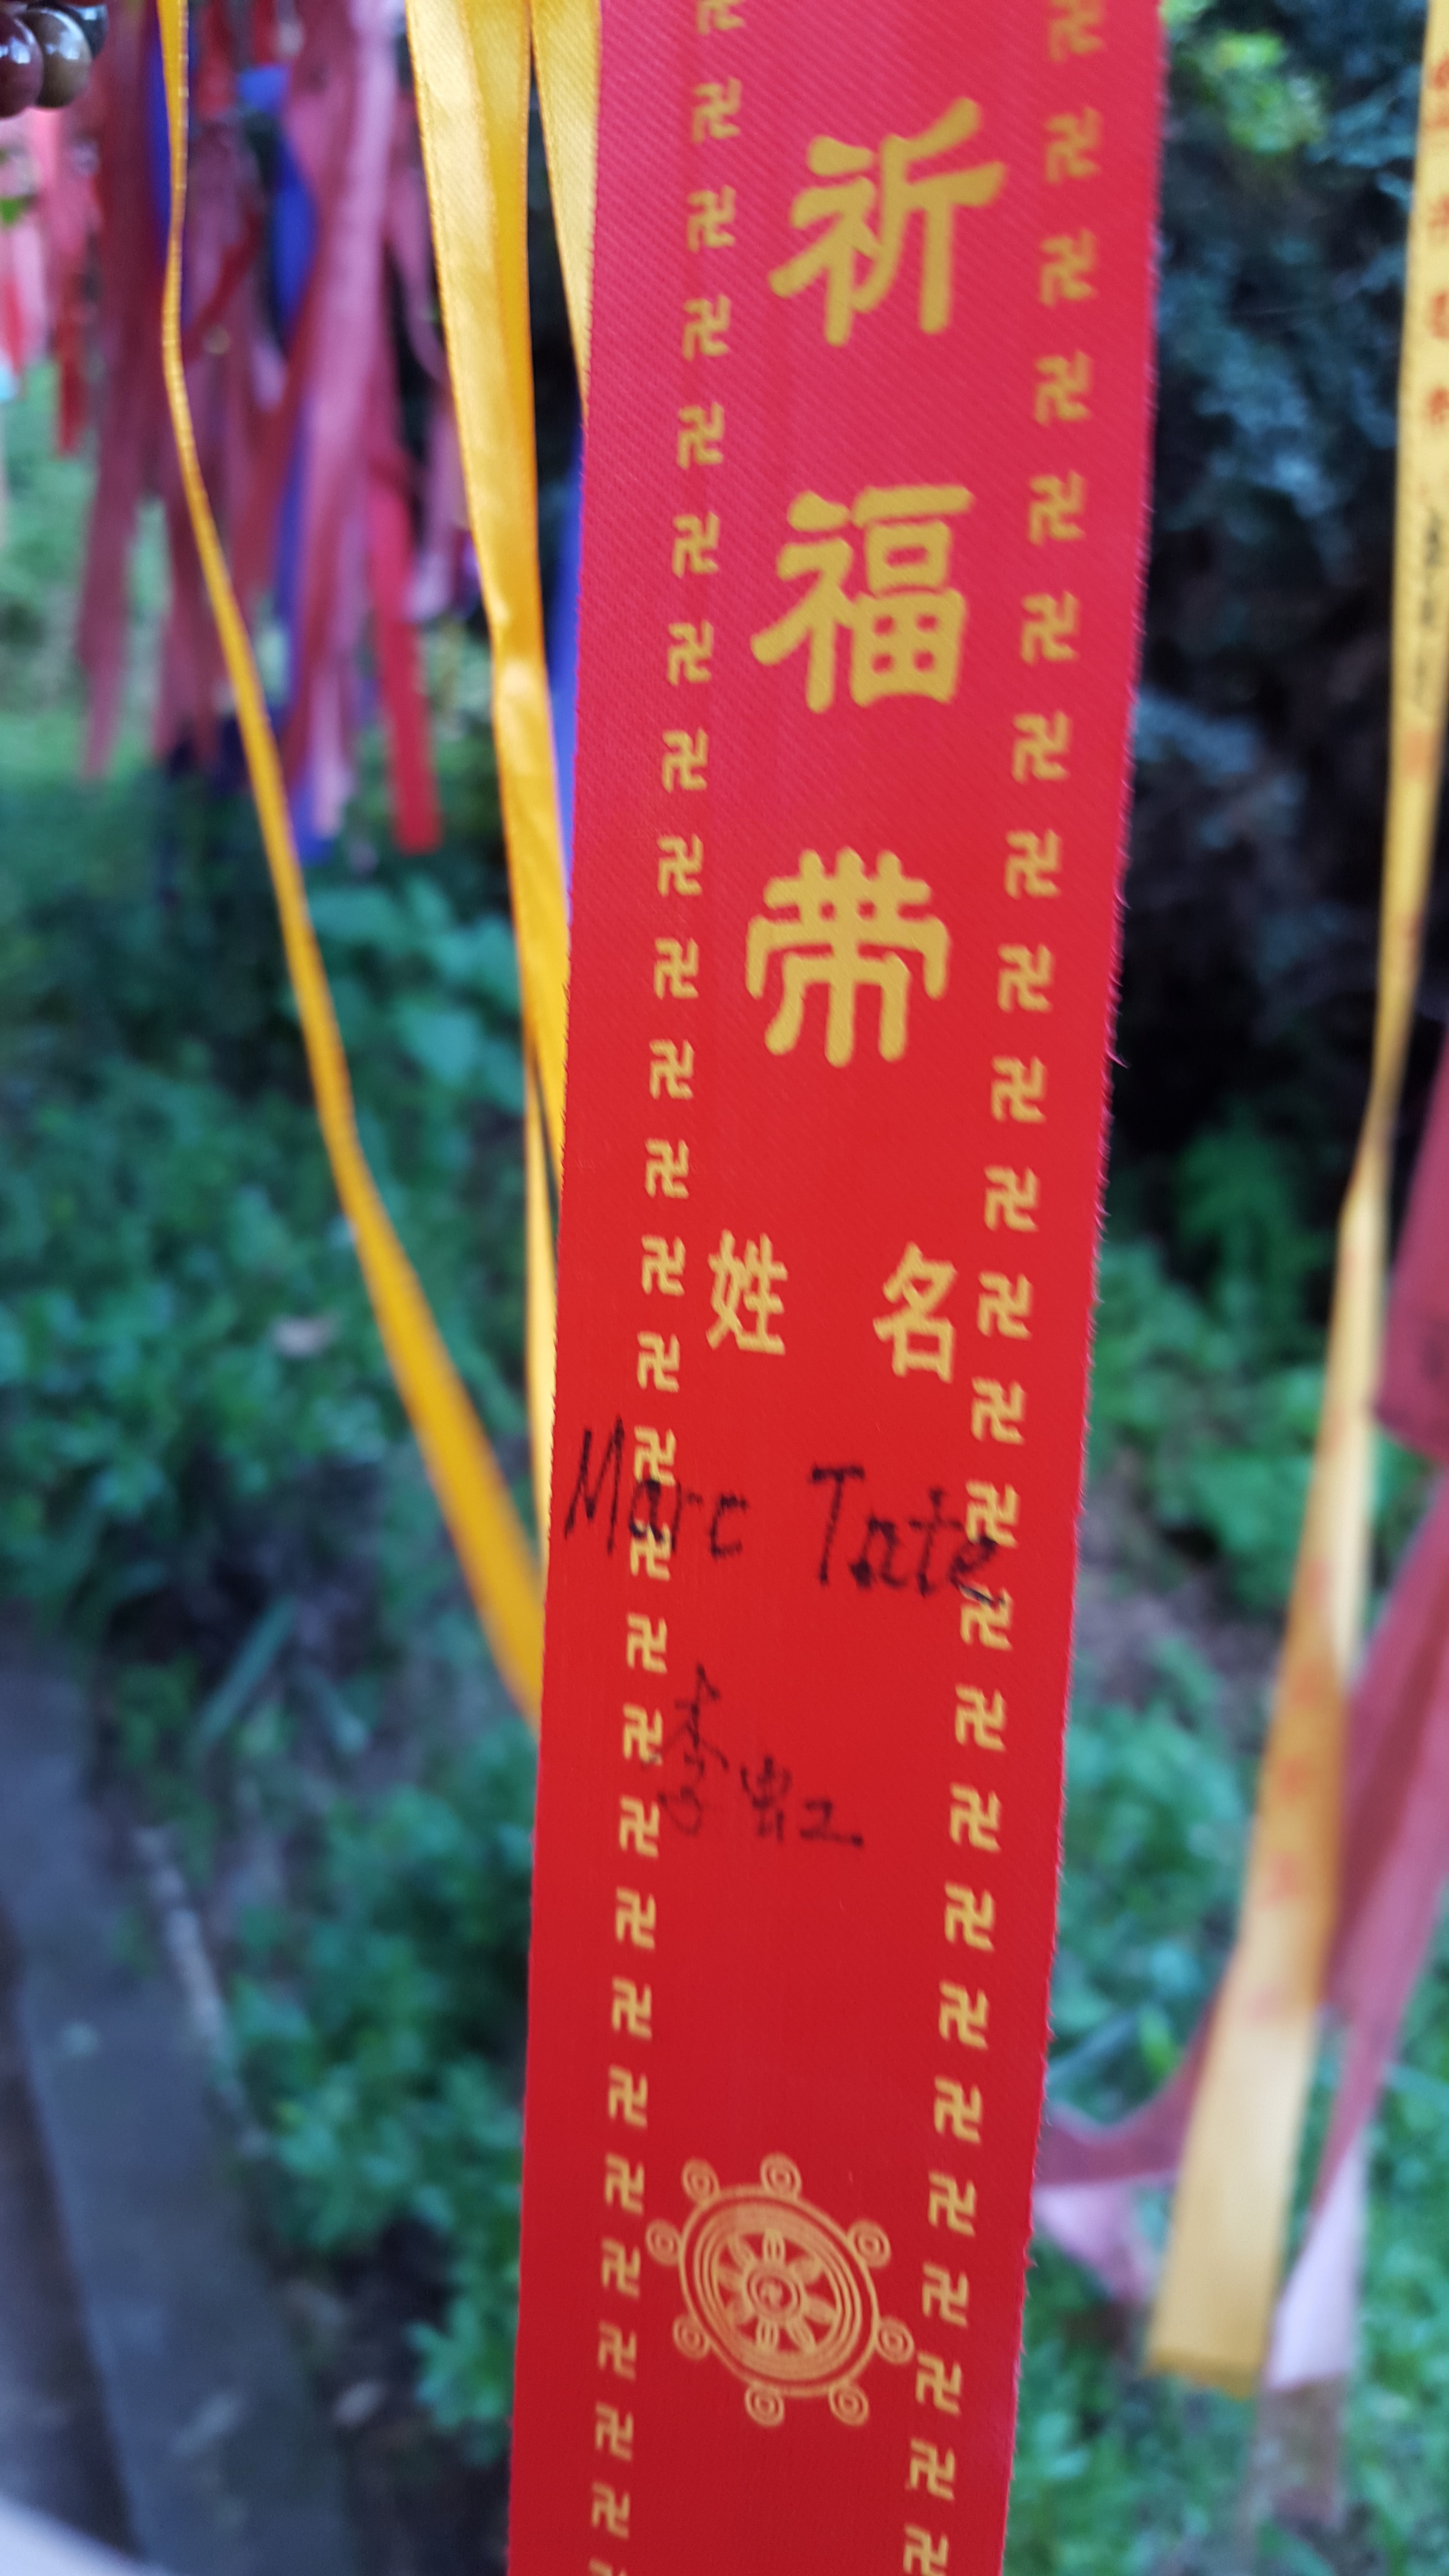 祈
福
带
姓 名
Marc Tate
李虹